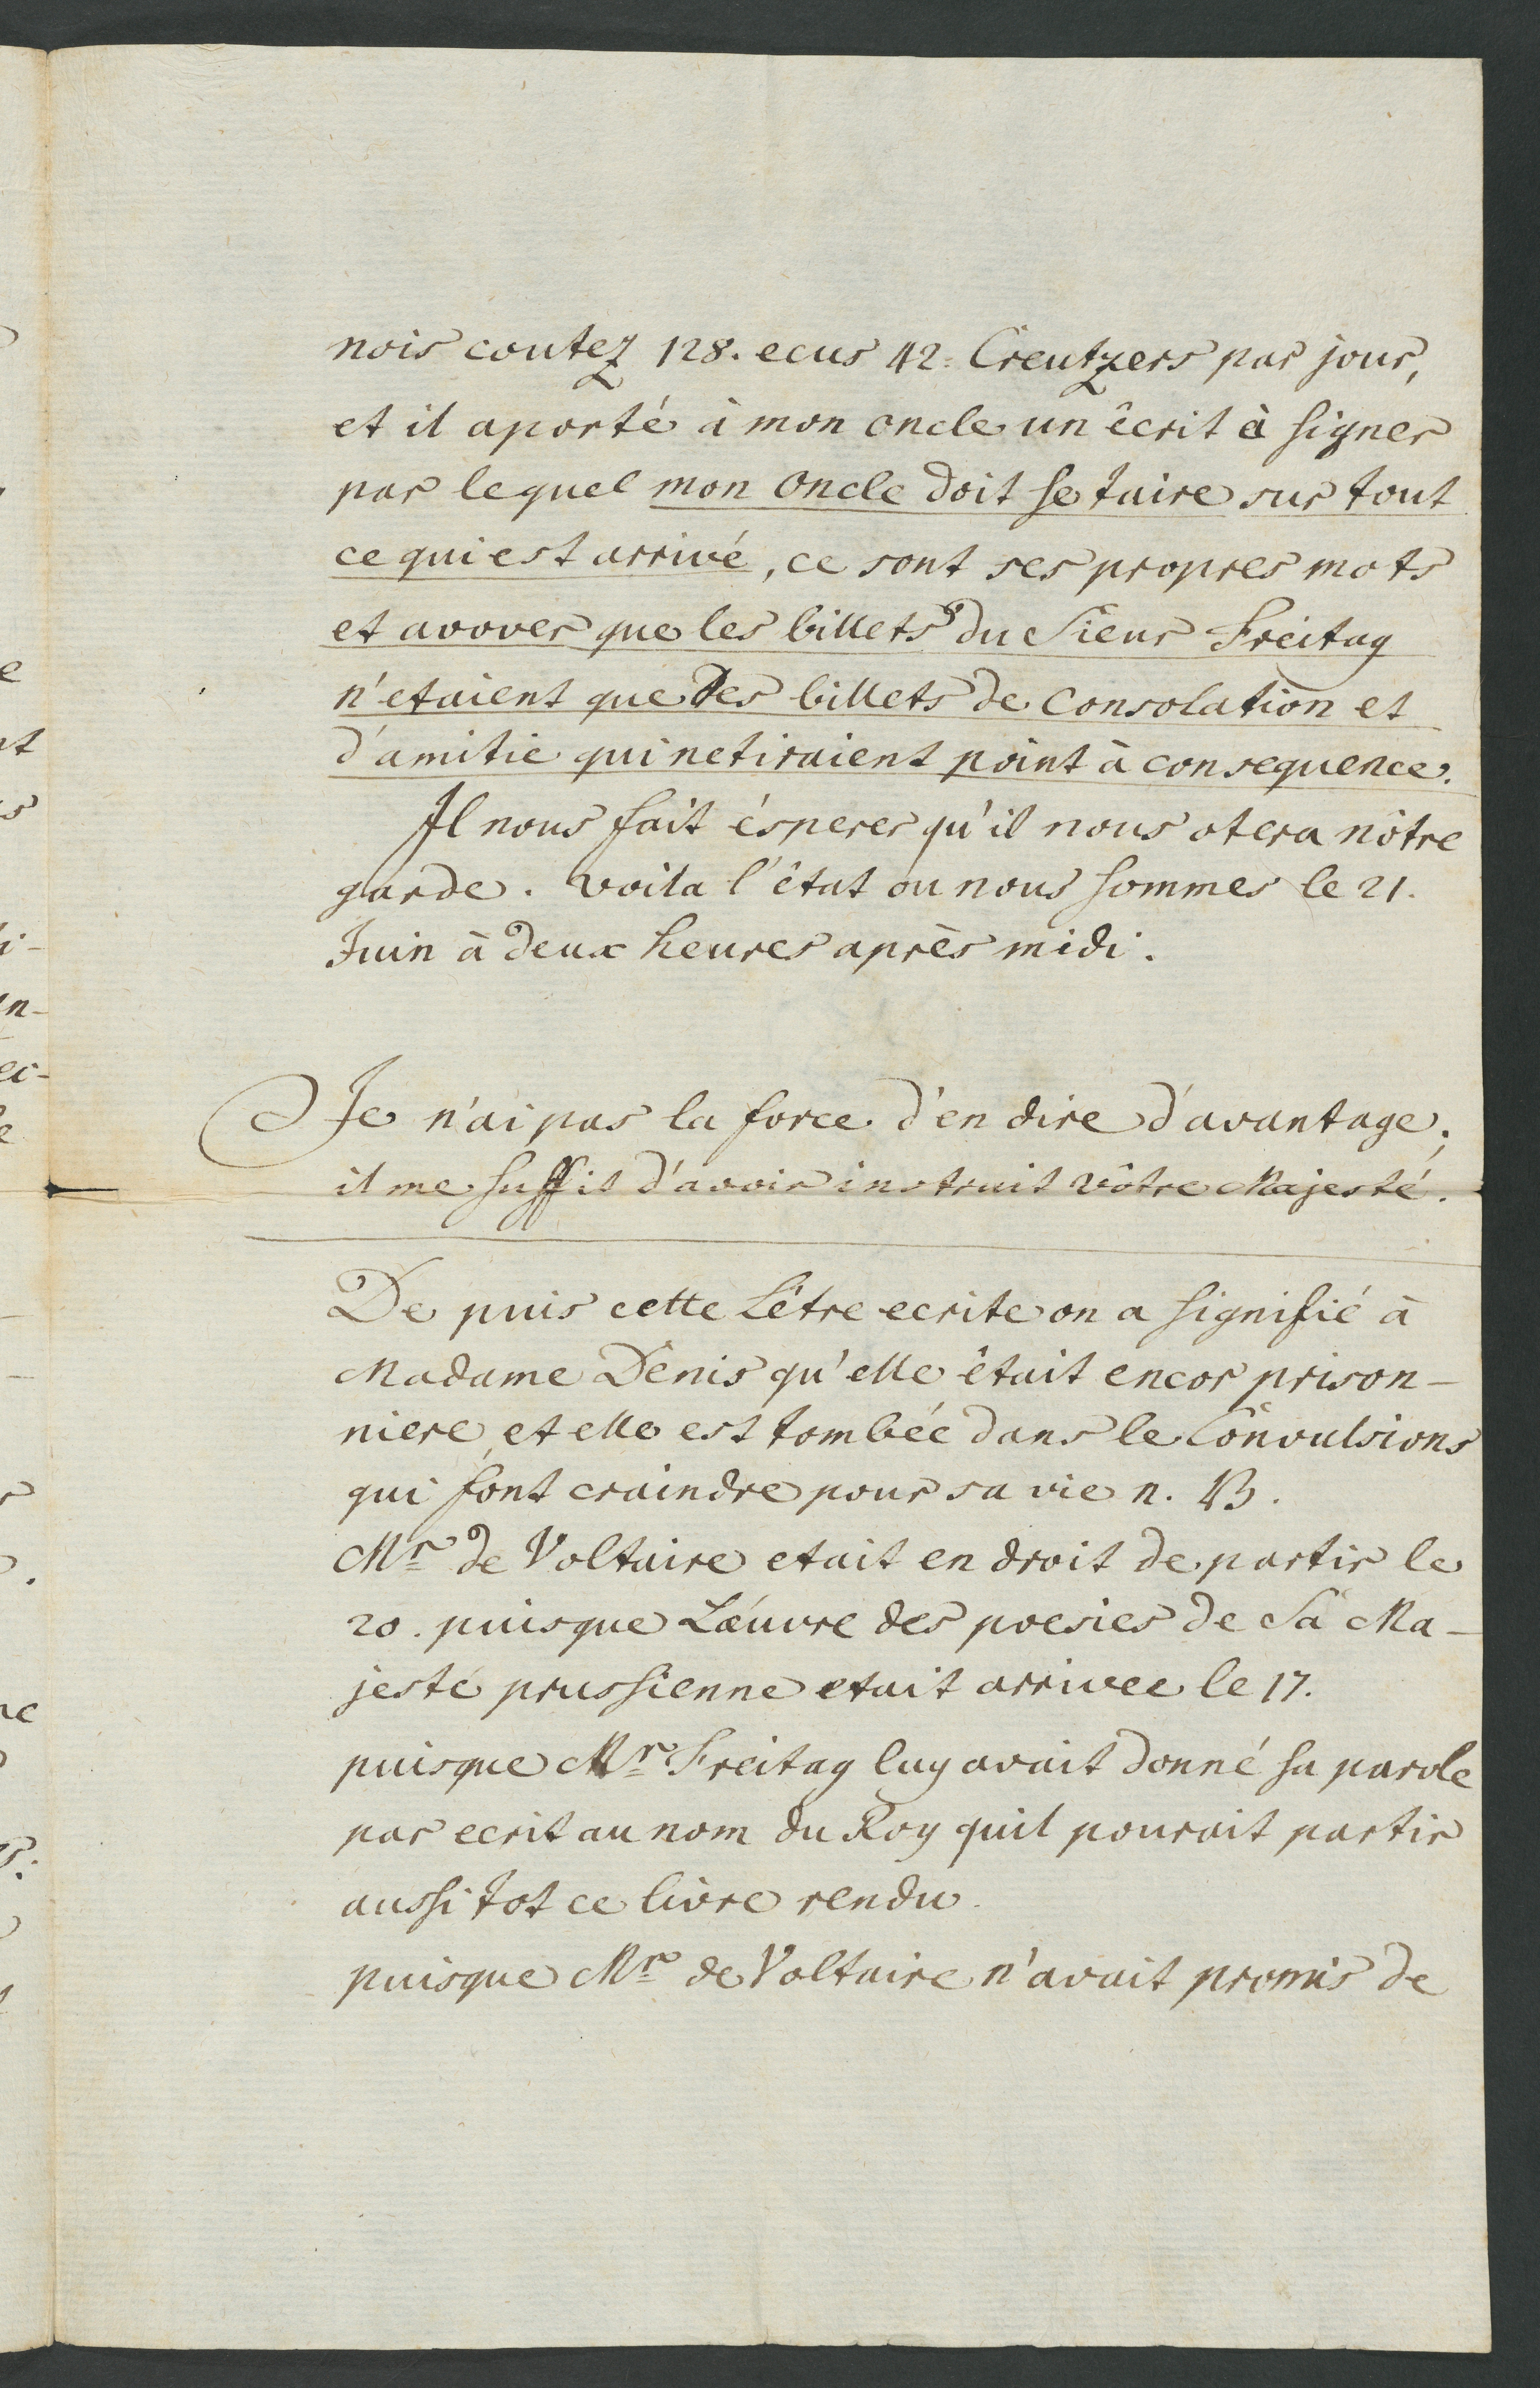 nois coutez 128. ecus 42. Creutzers par jour,
et il aporté à mon oncle un êcrit à signer
par lequel mon oncle doit se taire sur tout
ce qui est arrivé, ce sont ses propres mots
et avover que les billets du Sieur Freitag
n'etaient que des billets de Consolation et
d'amitie qui ne tiraient point à consequence.
Il nous fait ésperer qu'il nous otera nôtre
garde. Voila l'êtat ou nous sommes le 21.
Juin à deux heures après midi.
Je n'ai pas la force d'en dire d'avantage;
il me suffit d'avoir instruit Vôtre Majesté.
De puis cette Lêtre ecrite on a signifié à
Madame Denis qu'elle êtait encor prison-
niere et elle est tombée dans le Convulsions
qui font craindre pour sa vie n. B.
Mr. de Voltaire etait en droit de partir le
20. puisque L'œuvre des poesies de Sa Ma-
jesté prussienne etait arrivee le 17.
puisque Mr. Freitag luy avait donné sa parole
par ecrit au nom du Roy quil pourait partir
aussi tot ce livre rendu.
puisque Mr. de Voltaire n'avait promis de